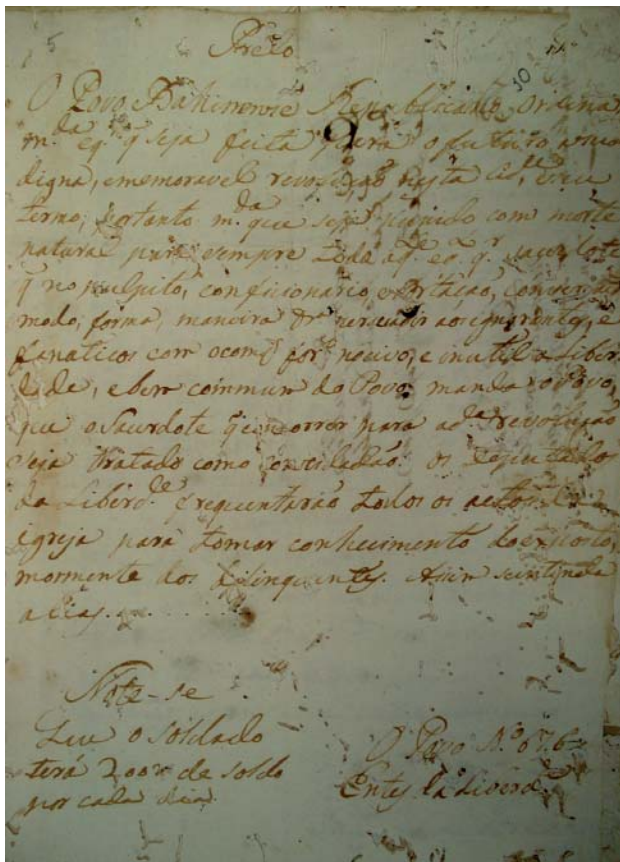 5
Prelo
10
O Povo Bahinense Republicano ordena
m.da e q.r q seja feita para o futuro a sua
digna, ememoravel revolução nesta cid.e e seu
termo; portanto m.da que seja punido com morte
natural para sempre todo aq.le e q.r sacerdote
q no pulpito, conficionario, exortação, conversação
modo, forma, maneira persuadir aos ignorantes, e
fanaticos com o nocivo, e inutil a Liber
dade, e bem commum do Povo: manda o Povo,
que o Sacerdote q concorrer para a d.a revolução
seja tratado como Concidadão. os Deputados
da Liberd.e frequentarão todos os actos da
igreja para tomar conhecimento do exposto,
mormente dos delinquentes. Assim
alias.
Note-se
Que o soldado
terá 200r de soldo
por cada dia.
O Povo N.º 676
Entes da Liberd.e